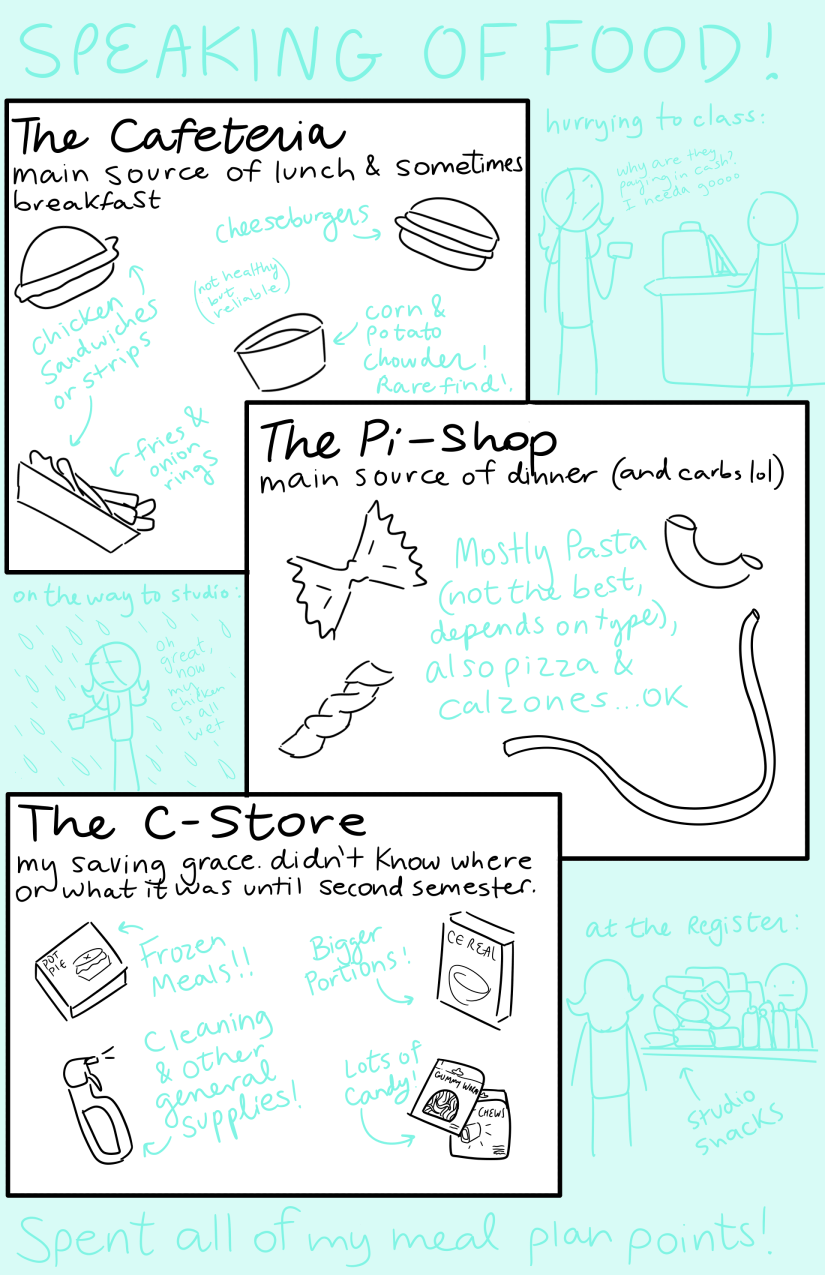 SPEAKING OF FOOD!
The Cafeteria
main source of lunch & sometimes
breakfast
cheeseburgers
(not healthy
but
reliable)
chicken
sandwiches
or strips
corn &
potato
chowder!
Rare find!.
fries &
onion
rings
hurrying to class:
why are they
paying in cash?
I needa goooo
The Pi-Shop
main source of dinner (and carbs lol)
Mostly Pasta
(not the best,
depends on type),
also pizza &
calzones...OK
on the way to studio:
oh
great,
now
my
chicken
is all
wet
The C-Store
my saving grace. didn't know where
or what it was until second semester.
POT
PIE
Frozen
Meals!!
Bigger
Portions!
CEREAL
Cleaning
& other
general
supplies!
Lots of
Candy!
GUMMY WORM
CHEWS
at the register:
studio
snacks
Spent all of my meal plan points!